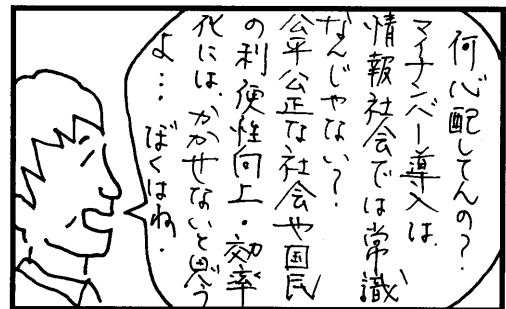 何心配してんの？
マイナンバー導入は、
情報社会では常識
なんじゃない？
公平公正な社会や国民
の利便性向上・効率
化には、かかせないと思う
よ…ぼくはね．